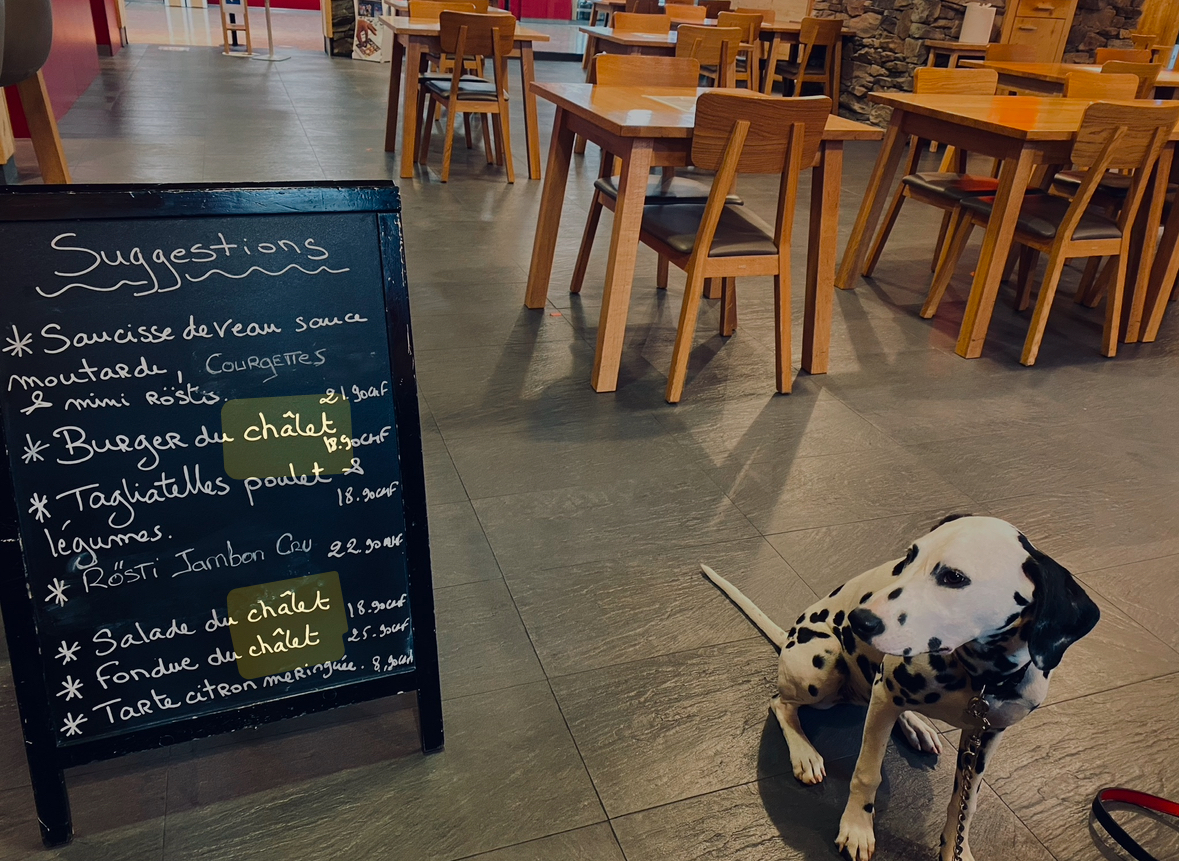 Suggestions
* Saucisse de veau sauce
moutarde, Courgettes
& mini Röstis. 21.90CHF
* Burger du châlet
18.90CHF
* Tagliatelles poulet &
18.90CHF
légumes.
* Rösti Jambon Cru 22.90CHF
* Salade du châlet 18.90CHF
* Fondue du châlet 25.90CHF
* Tarte citron meringuée. 8.90CHF